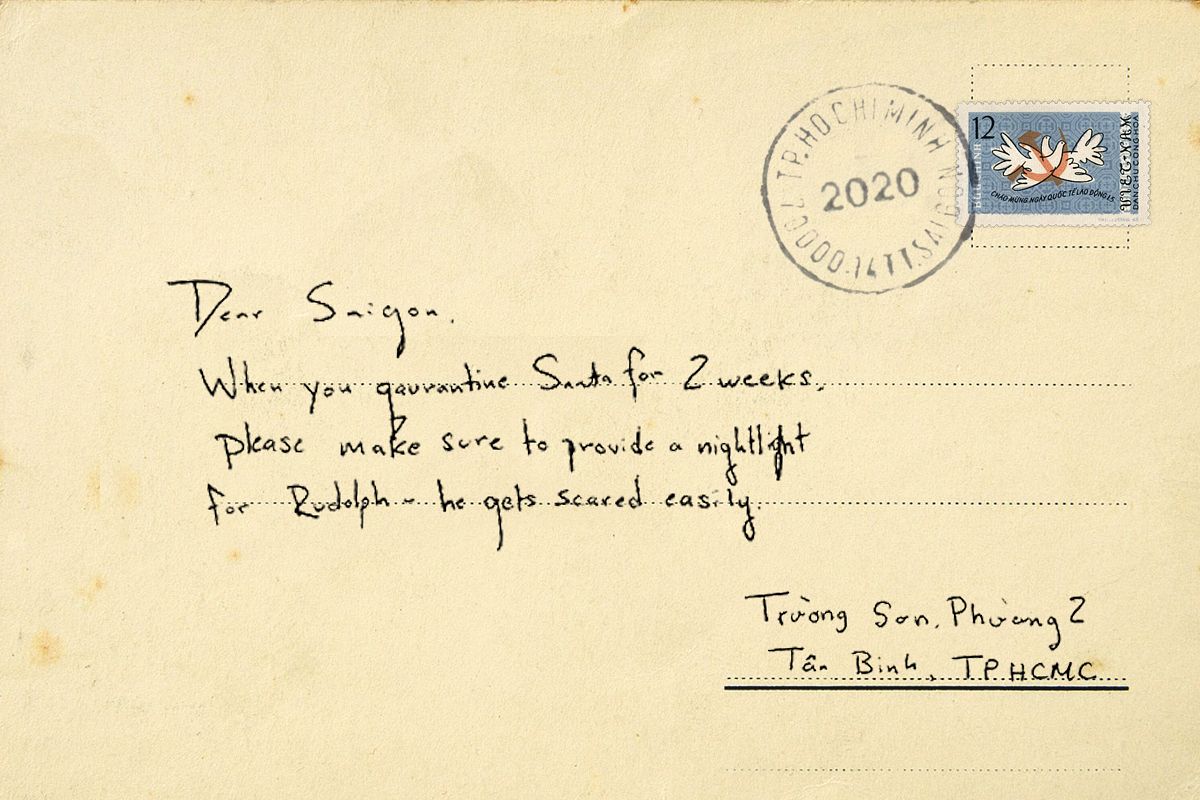 TP. HO CHI MINH
2020
70000
12
BƯU CHÍNH
VIET-NAM
DAN CHU CONG HOA
CHÀO MỪNG NGÀY QUỐC TẾ LAO ĐỘNG 1.5
Dear Saigon.
When you qaurantine Santa for 2 weeks,
please make sure to provide a nightlight
for Rudolph - he gets scared easily.
Trường Sơn, Phường 2
Tân Bình, TPHCMC